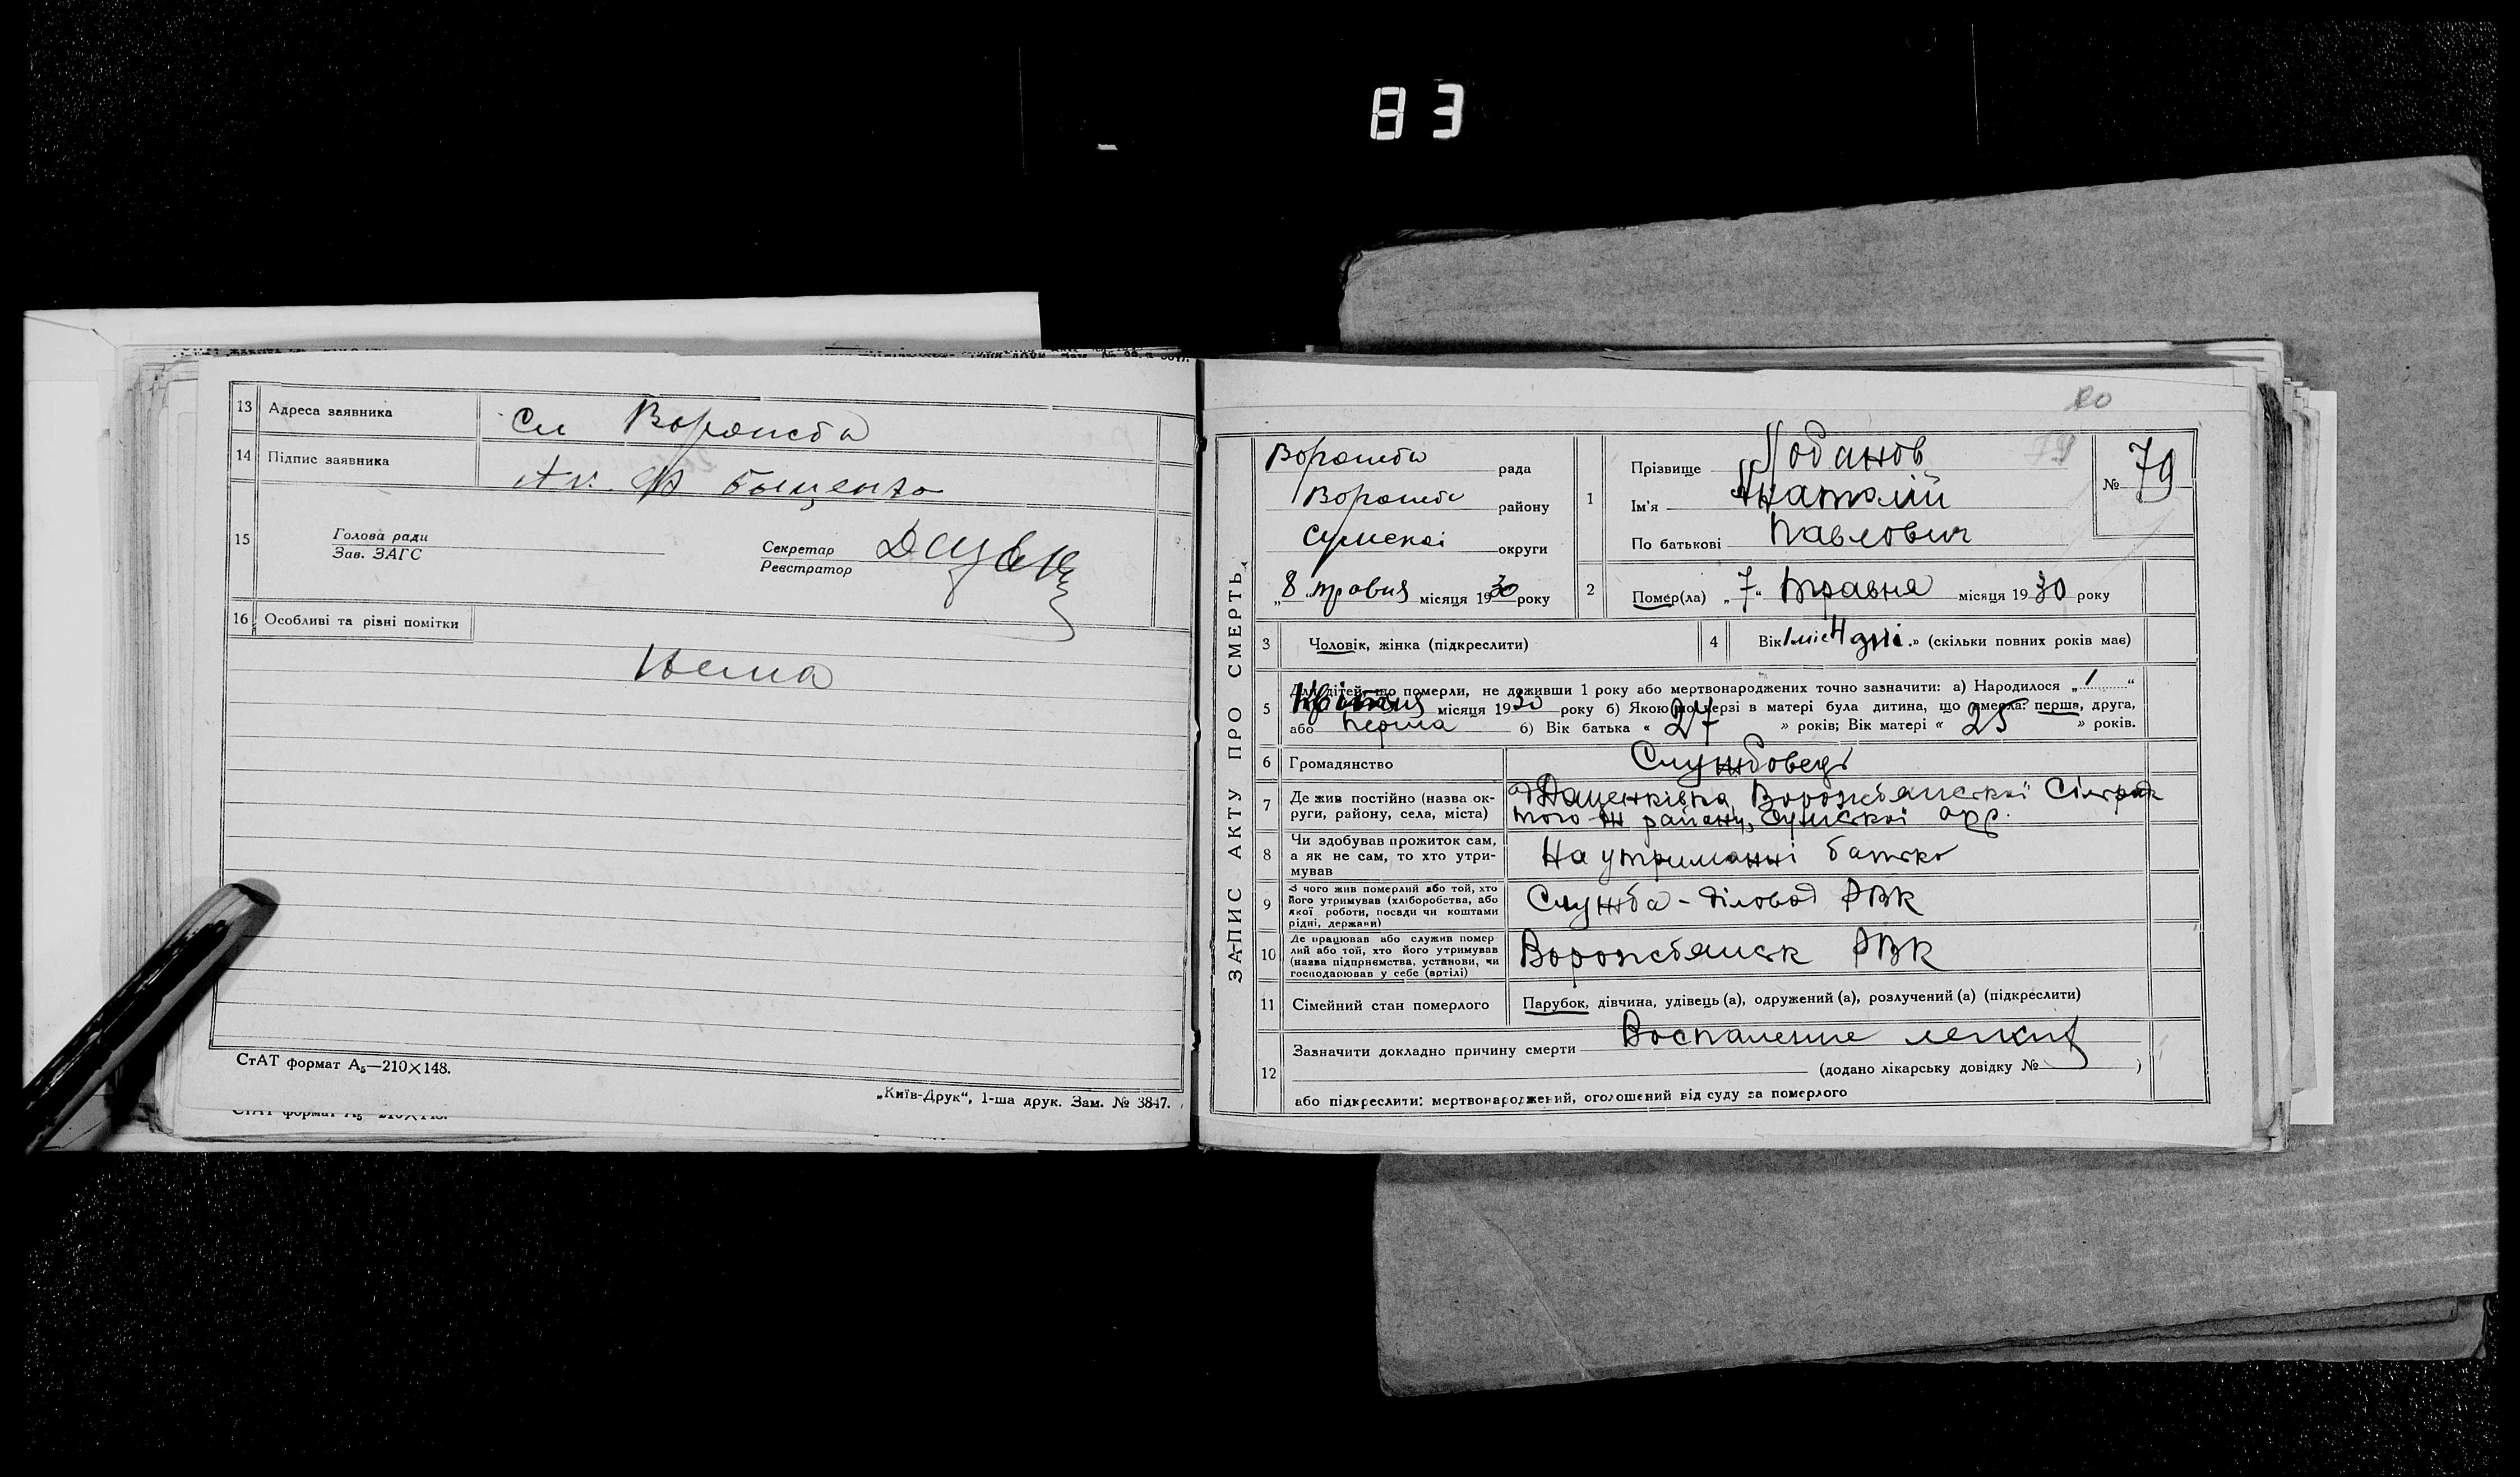 83
13 Адреса заявника См Ворожба
14 Підпис заявника Ак. Ф
15 Голова ради
Зав. ЗАГС
Секретар
Реєстратор
16 Особливі та різні помітки
Нема
СтАТ формат А₅—210×148.
„Київ-Друк“, 1-ша друк. Зам. № 3847.
80
ЗАПИС АКТУ ПРО СМЕРТЬ
Ворожба рада
Ворожба району
Сумської округи
„8 травня місяця 1930 року
1 Прізвище Лобанов
Ім'я Анатолій
По батькові Павлович
79
№ 79
2 Помер(ла) „7“ Травня місяця 1930 року
3 Чоловік, жінка (підкреслити)
4 Вік 1 міс дні.» (скільки повних років має)
5 Для дітей, що померли, не доживши 1 року або мертвонароджених точно зазначити: а) Народилося „1“
Квітня місяця 1930 року б) Якою по черзі в матері була дитина, що вмерла: перша, друга,
або перша б) Вік батька « 27 » років; Вік матері « 25 » років.
6 Громадянство Службовець
7 Де жив постійно (назва ок-
руги, району, села, міста)
Даценківка, Ворожбянської Сільради
того ж району, Сумської окр.
8 Чи здобував прожиток сам,
а як не сам, то хто утри-
мував
На утриманні батька
9 З чого жив померлий або той, хто
його утримував (хліборобства, або
якої роботи, посади чи коштами
рідні, держави)
Служба - діловод РВК
10 Де працював або служив помер
лий або той, хто його утримував
(назва підприємства, установи, чи
господарював у себе (артілі)
Ворожбянськ РВК
11 Сімейний стан померлого Парубок, дівчина, удівець (а), одружений (а), розлучений (а) (підкреслити)
12 Зазначити докладно причину смерти Воспаление легких
(додано лікарську довідку № )
або підкреслити: мертвонароджений, оголошений від суду за померлого